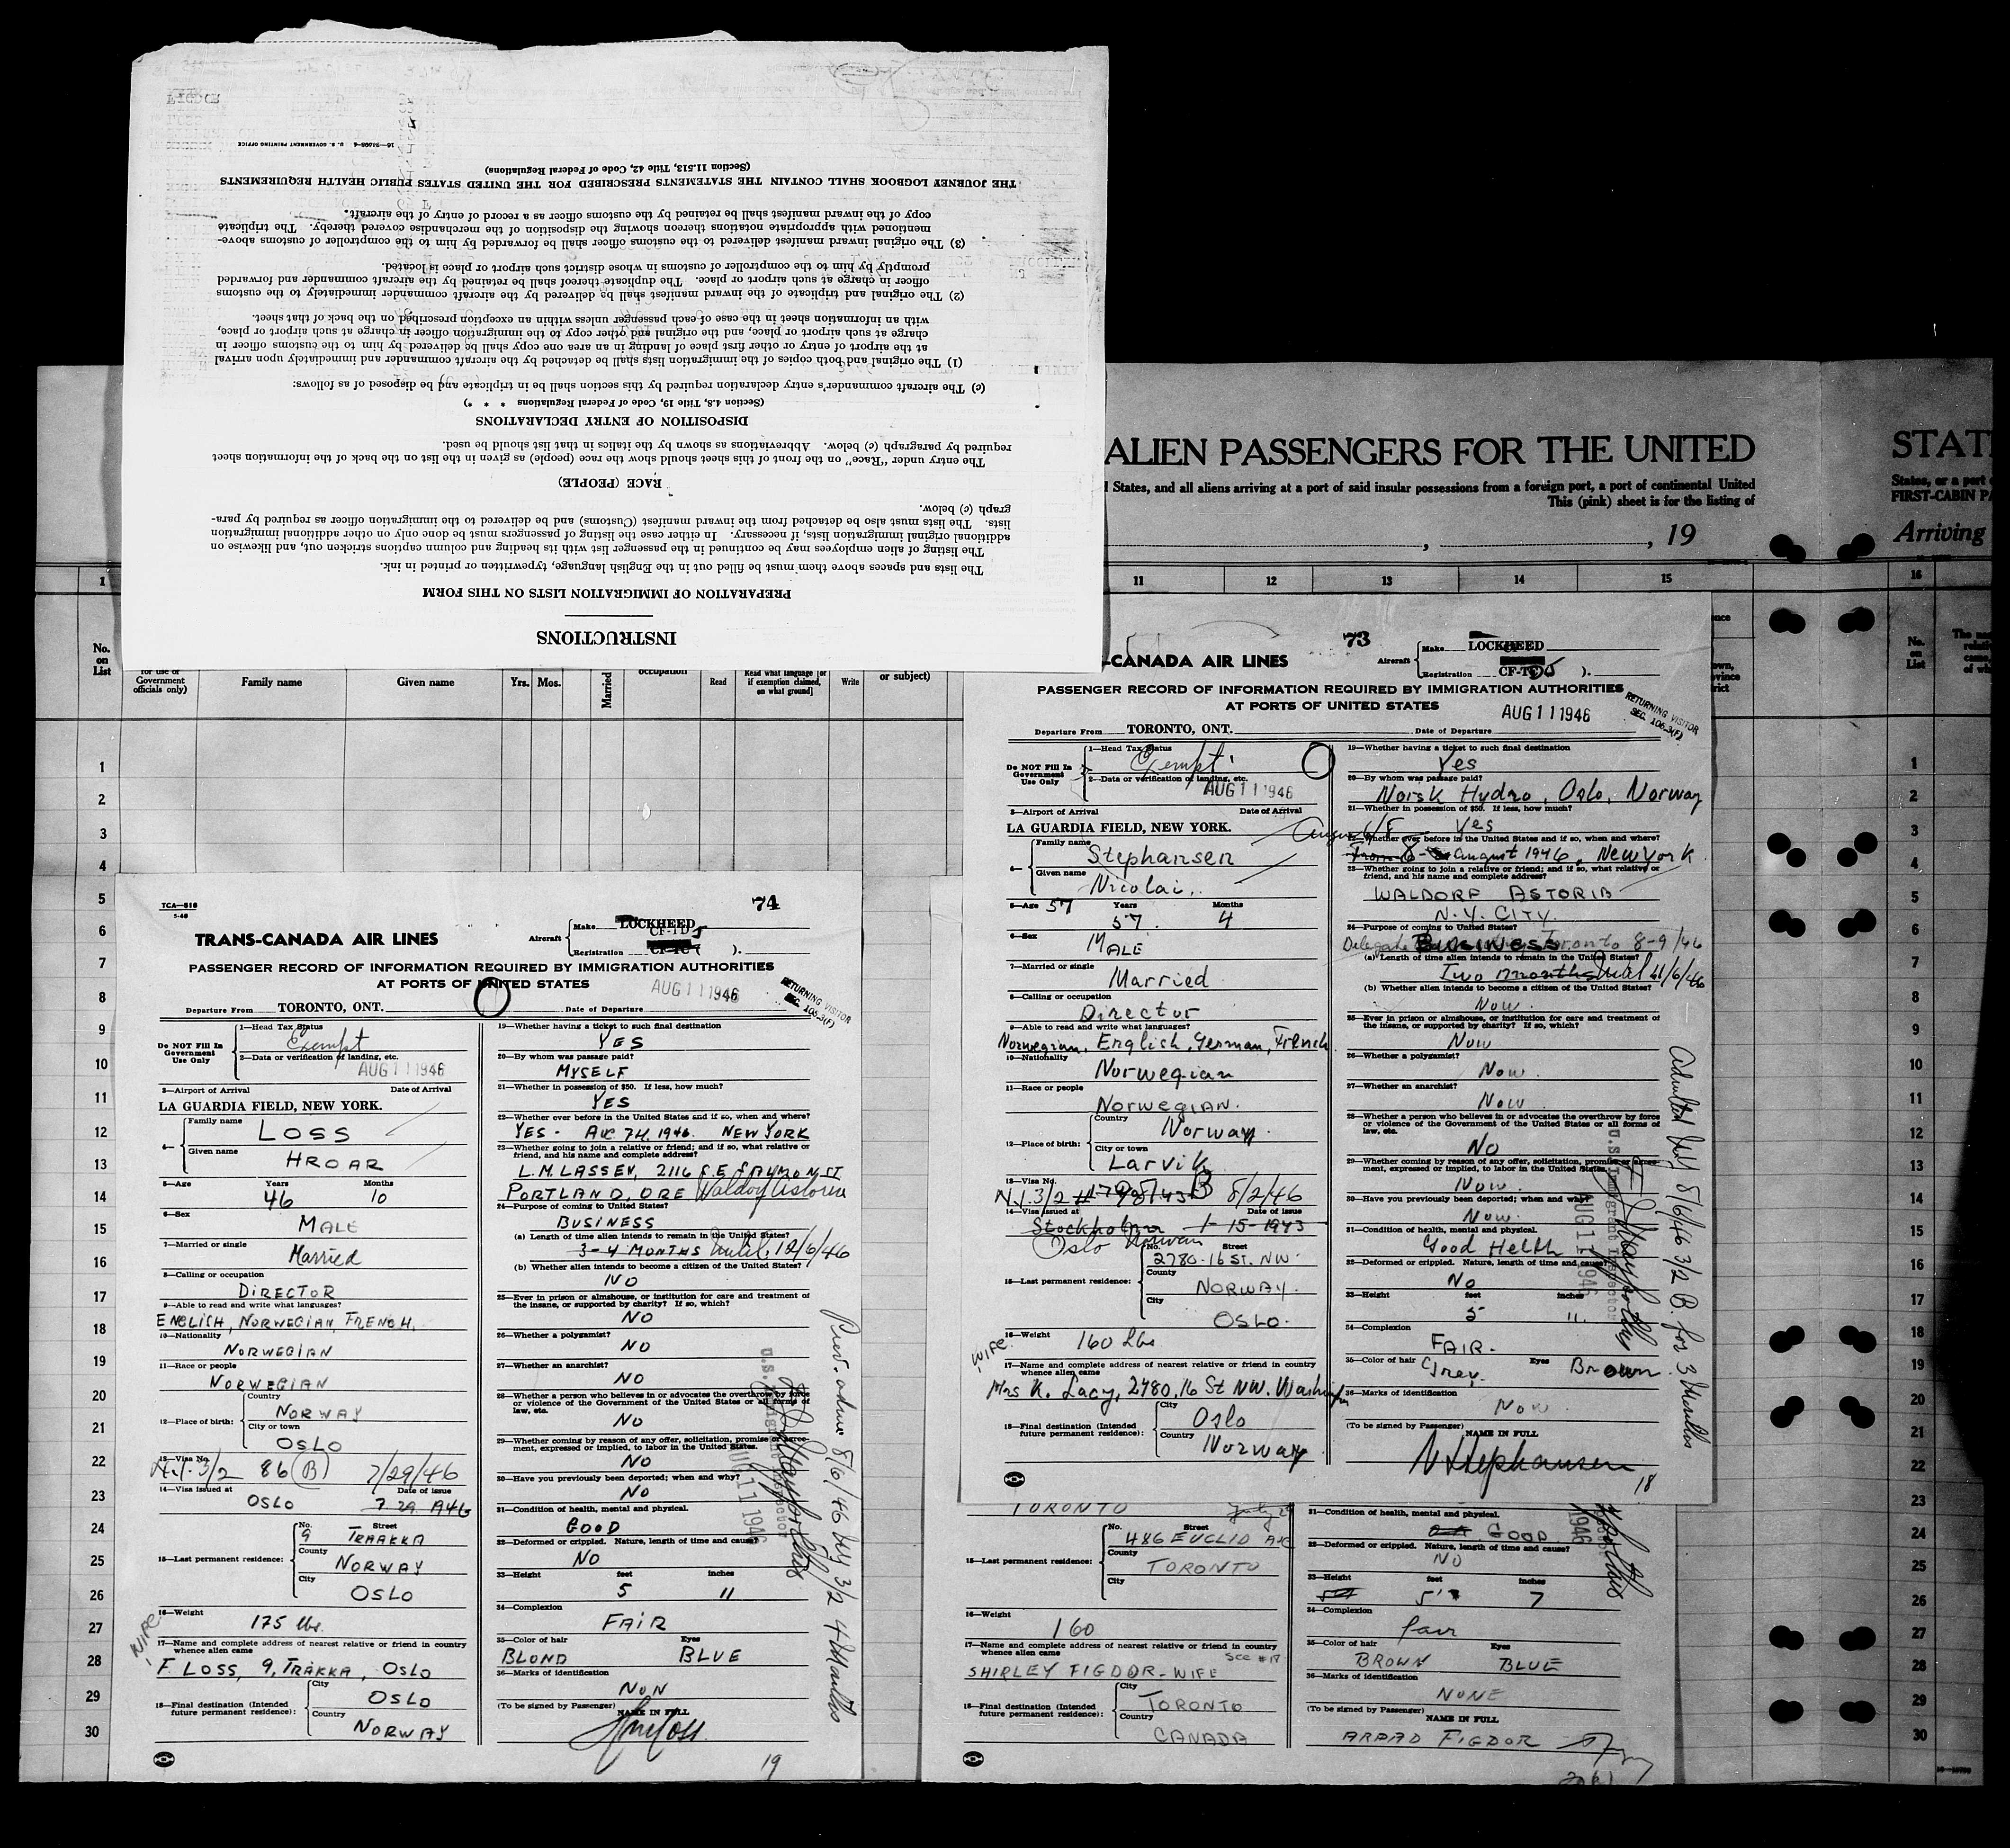 INSTRUCTIONS
PREPARATION OF IMMIGRATION LISTS ON THIS FORM
The lists and spaces above them must be filled out in the English language, typewritten or printed in ink.
The listing of alien employees may be continued in the passenger list with its heading and column captions stricken out, and likewise on
additional original immigration lists, if necessary. In either case the listing of passengers must be done only on other additional immigration
lists. The lists must also be detached from the inward manifest (Customs) and be delivered to the immigration officer as required by para-
graph (c) below.
RACE (PEOPLE)
The entry under "Race" on the front of this sheet should show the race (people) as given in the list on the back of the information sheet
required by paragraph (c) below. Abbreviations as shown by the italics in that list should be used.
DISPOSITION OF ENTRY DECLARATIONS
(Section 4.8, Title 19, Code of Federal Regulations * * *)
(c) The aircraft commander's entry declaration required by this section shall be in triplicate and be disposed of as follows:
(1) The original and both copies of the immigration lists shall be detached by the aircraft commander and immediately upon arrival
at the airport of entry or other first place of landing in an area one copy shall be delivered by him to the customs officer in
charge at such airport or place, and the original and other copy to the immigration officer in charge at such airport or place,
with an information sheet in the case of each passenger unless within an exception prescribed on the back of that sheet.
(2) The original and triplicate of the inward manifest shall be delivered by the aircraft commander immediately to the customs
officer in charge at such airport or place. The duplicate thereof shall be retained by the aircraft commander and forwarded
promptly by him to the comptroller of customs in whose district such airport or place is located.
(3) The original inward manifest delivered to the customs officer shall be forwarded by him to the comptroller of customs above-
mentioned with appropriate notations thereon showing the disposition of the merchandise covered thereby. The triplicate
copy of the inward manifest shall be retained by the customs officer as a record of entry of the aircraft.
THE JOURNEY LOGBOOK SHALL CONTAIN THE STATEMENTS PRESCRIBED FOR THE UNITED STATES PUBLIC HEALTH REQUIREMENTS
(Section 11.513, Title 42, Code of Federal Regulations)
U. S. GOVERNMENT PRINTING OFFICE
ALIEN PASSENGERS FOR THE UNITED STAT
States, and all aliens arriving at a port of said insular possessions from a foreign port, a port of continental United States, or a port
This (pink) sheet is for the listing of FIRST-CABIN PA
, , 19 Arriving
1 11 12 13 14 15 16
No. on List
for use of Government officials only)
Family name Given name Yrs. Mos. Married occupation Read Read what language [or if exemption claimed, on what ground] Write or subject)
No. on List
1
2
3
4
5
6
7
8
9
10
11
12
13
14
15
16
17
18
19
20
21
22
23
24
25
26
27
28
29
30
73
-CANADA AIR LINES
Aircraft Make LOCKHEED
Registration ).
PASSENGER RECORD OF INFORMATION REQUIRED BY IMMIGRATION AUTHORITIES
AT PORTS OF UNITED STATES
AUG 11 1946
RETURNING VISITOR
SEC. 106.3(F)
Departure From TORONTO, ONT. Date of Departure
Do NOT Fill In Government Use Only
1—Head Tax Status
Exempt
2—Data or verification of landing, etc.
AUG 11 1946
3—Airport of Arrival Date of Arrival
LA GUARDIA FIELD, NEW YORK.
4— Family name
Stephansen
Given name
Nicolai
5—Age 57 Years Months
57. 4
6—Sex
MALE
7—Married or single
Married
8—Calling or occupation
Director
9—Able to read and write what languages?
Norwegian, English, German, French
10—Nationality
Norwegian
11—Race or people
NORWEGIAN.
12—Place of birth: Country
Norway
City or town
Larvik
13—Visa No.
N.I. 3/2 B 8/2/46
14—Visa issued at Date of issue
Stockholm 1-15-1943
Oslo Norway
15—Last permanent residence: No. Street
2780-16 St. NW.
County
NORWAY.
City
OSLO.
16—Weight 160 Lbs
WIFE
17—Name and complete address of nearest relative or friend in country whence alien came
Mrs K. Lacy, 2780, 16 St NW. Washington
18—Final destination (Intended future permanent residence): City
Oslo
Country
Norway
19—Whether having a ticket to such final destination
Yes
20—By whom was passage paid?
Norsk Hydro, Oslo, Norway
21—Whether in possession of $50. If less, how much?
Yes
22—Whether ever before in the United States and if so, when and where?
From 8- August 1946, New York
23—Whether going to join a relative or friend; and if so, what relative or friend, and his name and complete address?
WALDORF ASTORIA
N.Y. CITY.
24—Purpose of coming to United States?
Delegate BUSINESS Toronto 8-9/46
(a) Length of time alien intends to remain in the United States?
Two months Until 11/6/46
(b) Whether alien intends to become a citizen of the United States?
Now.
25—Ever in prison or almshouse, or institution for care and treatment of the insane, or supported by charity? If so, which?
Now
26—Whether a polygamist?
Now.
27—Whether an anarchist?
Now
28—Whether a person who believes in or advocates the overthrow by force or violence of the Government of the United States or all forms of law, etc.
NO
29—Whether coming by reason of any offer, solicitation, promise or agree-ment, expressed or implied, to labor in the United States.
Now.
30—Have you previously been deported; when and why?
Now.
31—Condition of health, mental and physical.
Good Helth
32—Deformed or crippled. Nature, length of time and cause?
No
33—Height feet inches
5 11.
34—Complexion
FAIR.
35—Color of hair Grey. Eyes Brown
36—Marks of identification
Now.
(To be signed by Passenger) NAME IN FULL
N Stephansen
18
U.S. Immigrant Inspector
AUG 11 1946
Admitted NY 8/6/46 3/2 B. for 3 Months
TCA—518
5-46
74
TRANS-CANADA AIR LINES
Aircraft Make LOCKHEED
CF-TD
Registration ).
PASSENGER RECORD OF INFORMATION REQUIRED BY IMMIGRATION AUTHORITIES
AT PORTS OF UNITED STATES
AUG 11 1946
RETURNING VISITOR
SEC. 106.3(F)
Departure From TORONTO, ONT. Date of Departure
Do NOT Fill In Government Use Only
1—Head Tax Status
Exempt
2—Data or verification of landing, etc.
AUG 11 1946
3—Airport of Arrival Date of Arrival
LA GUARDIA FIELD, NEW YORK.
4— Family name
LOSS
Given name
HROAR
5—Age Years Months
46 10
6—Sex
MALE
7—Married or single
Married
8—Calling or occupation
DIRECTOR
9—Able to read and write what languages?
ENGLISH, NORWEGIAN, FRENCH.
10—Nationality
NORWEGIAN
11—Race or people
NORWEGIAN
12—Place of birth: Country
NORWAY
City or town
OSLO
13—Visa No.
N.I. 3/2 86 (B) 7/29/46
14—Visa issued at Date of issue
OSLO 7 29 1946
15—Last permanent residence: No. Street
9 TRAKKA
County
NORWAY
City
OSLO
16—Weight
175 lbs.
WIFE
17—Name and complete address of nearest relative or friend in country whence alien came
F. LOSS, 9, TRAKKA, OSLO
18—Final destination (Intended future permanent residence): City
OSLO
Country
NORWAY
19—Whether having a ticket to such final destination
YES
20—By whom was passage paid?
MYSELF
21—Whether in possession of $50. If less, how much?
YES
22—Whether ever before in the United States and if so, when and where?
YES - AUG 7th 1946. NEW YORK
23—Whether going to join a relative or friend; and if so, what relative or friend, and his name and complete address?
L.M. LASSEN, 2116 S.E. SALMON ST
PORTLAND, ORE Waldorf Astoria
24—Purpose of coming to United States?
BUSINESS
(a) Length of time alien intends to remain in the United States?
3-4 MONTHS Until, 12/6/46
(b) Whether alien intends to become a citizen of the United States?
NO
25—Ever in prison or almshouse, or institution for care and treatment of the insane, or supported by charity? If so, which?
NO
26—Whether a polygamist?
NO
27—Whether an anarchist?
NO
28—Whether a person who believes in or advocates the overthrow by force or violence of the Government of the United States or all forms of law, etc.
NO
29—Whether coming by reason of any offer, solicitation, promise or agree-ment, expressed or implied, to labor in the United States.
NO
30—Have you previously been deported; when and why?
NO
31—Condition of health, mental and physical.
GOOD
32—Deformed or crippled. Nature, length of time and cause?
NO
33—Height feet inches
5 11
34—Complexion
FAIR
35—Color of hair Eyes
BLOND BLUE
36—Marks of identification
NON
(To be signed by Passenger) NAME IN FULL
19
AUG 11 1946
Prev. admit 8/6/46 NY 3/2 4 Months
TORONTO
15—Last permanent residence: No. Street
486 EUCLID AVE
County
TORONTO
City
16—Weight
160
17—Name and complete address of nearest relative or friend in country whence alien came
See #17
SHIRLEY FIGDOR - WIFE
18—Final destination (Intended future permanent residence): City
TORONTO
Country
CANADA
31—Condition of health, mental and physical.
GOOD
32—Deformed or crippled. Nature, length of time and cause?
NO
33—Height feet inches
5' 7
34—Complexion
fair
35—Color of hair Eyes
BROWN BLUE
36—Marks of identification
NONE
(To be signed by Passenger) NAME IN FULL
ARPAD FIGDOR
1946